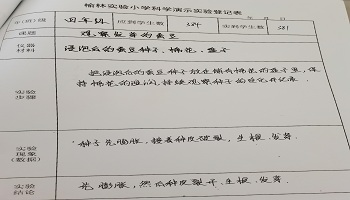 榆林实验小学科学演示实验登记表
年 月 日
年(班)级 四年级 应到学生数 384 实到学生数 381
课题 观察发芽的蚕豆
仪器材料 浸泡后的蚕豆种子、棉花、盒子
实验步骤 把浸泡后的蚕豆种子放在铺有棉花的盒子里,保
持棉花的湿润,持续观察种子的变化并记录。
实验现象(数据) 种子先膨胀,接着种皮破裂,生根、发芽。
实验结论 先膨胀,然后种皮裂开、生根、发芽。